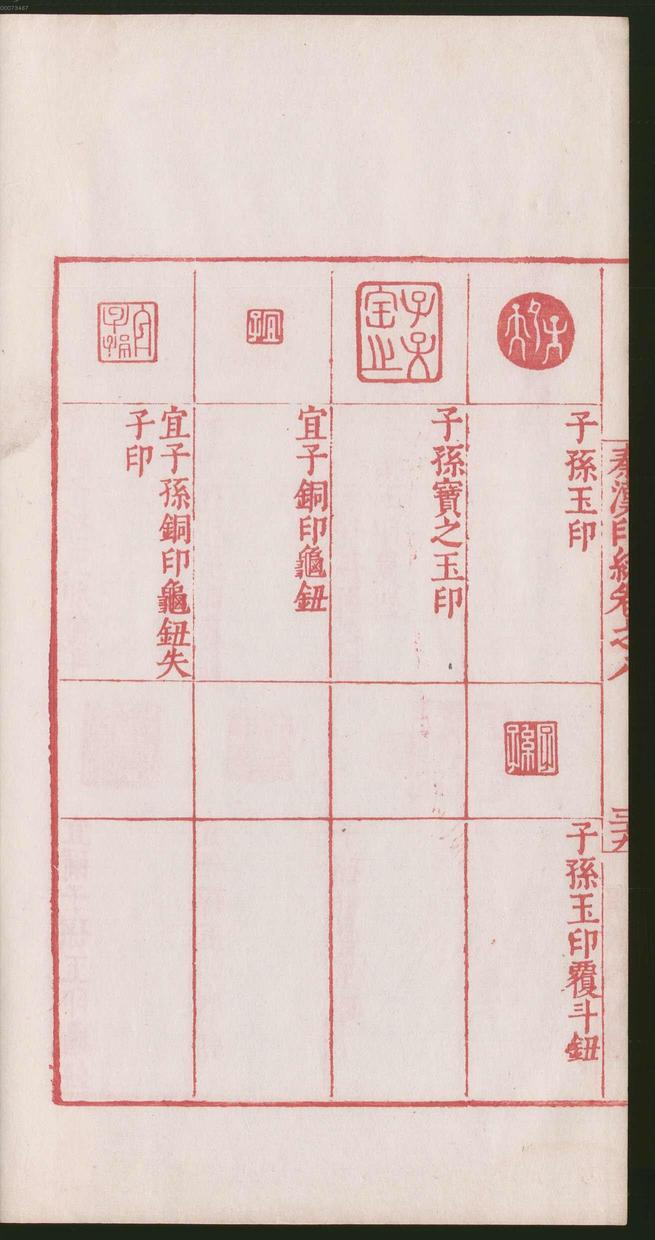 00073487
秦漢印統卷之八
子孫玉印
子孫
子孫玉印覆斗鈕
子孫寶之玉印
宜子
宜子銅印龜鈕
宜子孫銅印龜鈕失
子印